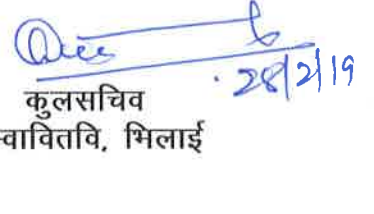 28/2/19
कुलसचिव
स्वावितवि, भिलाई